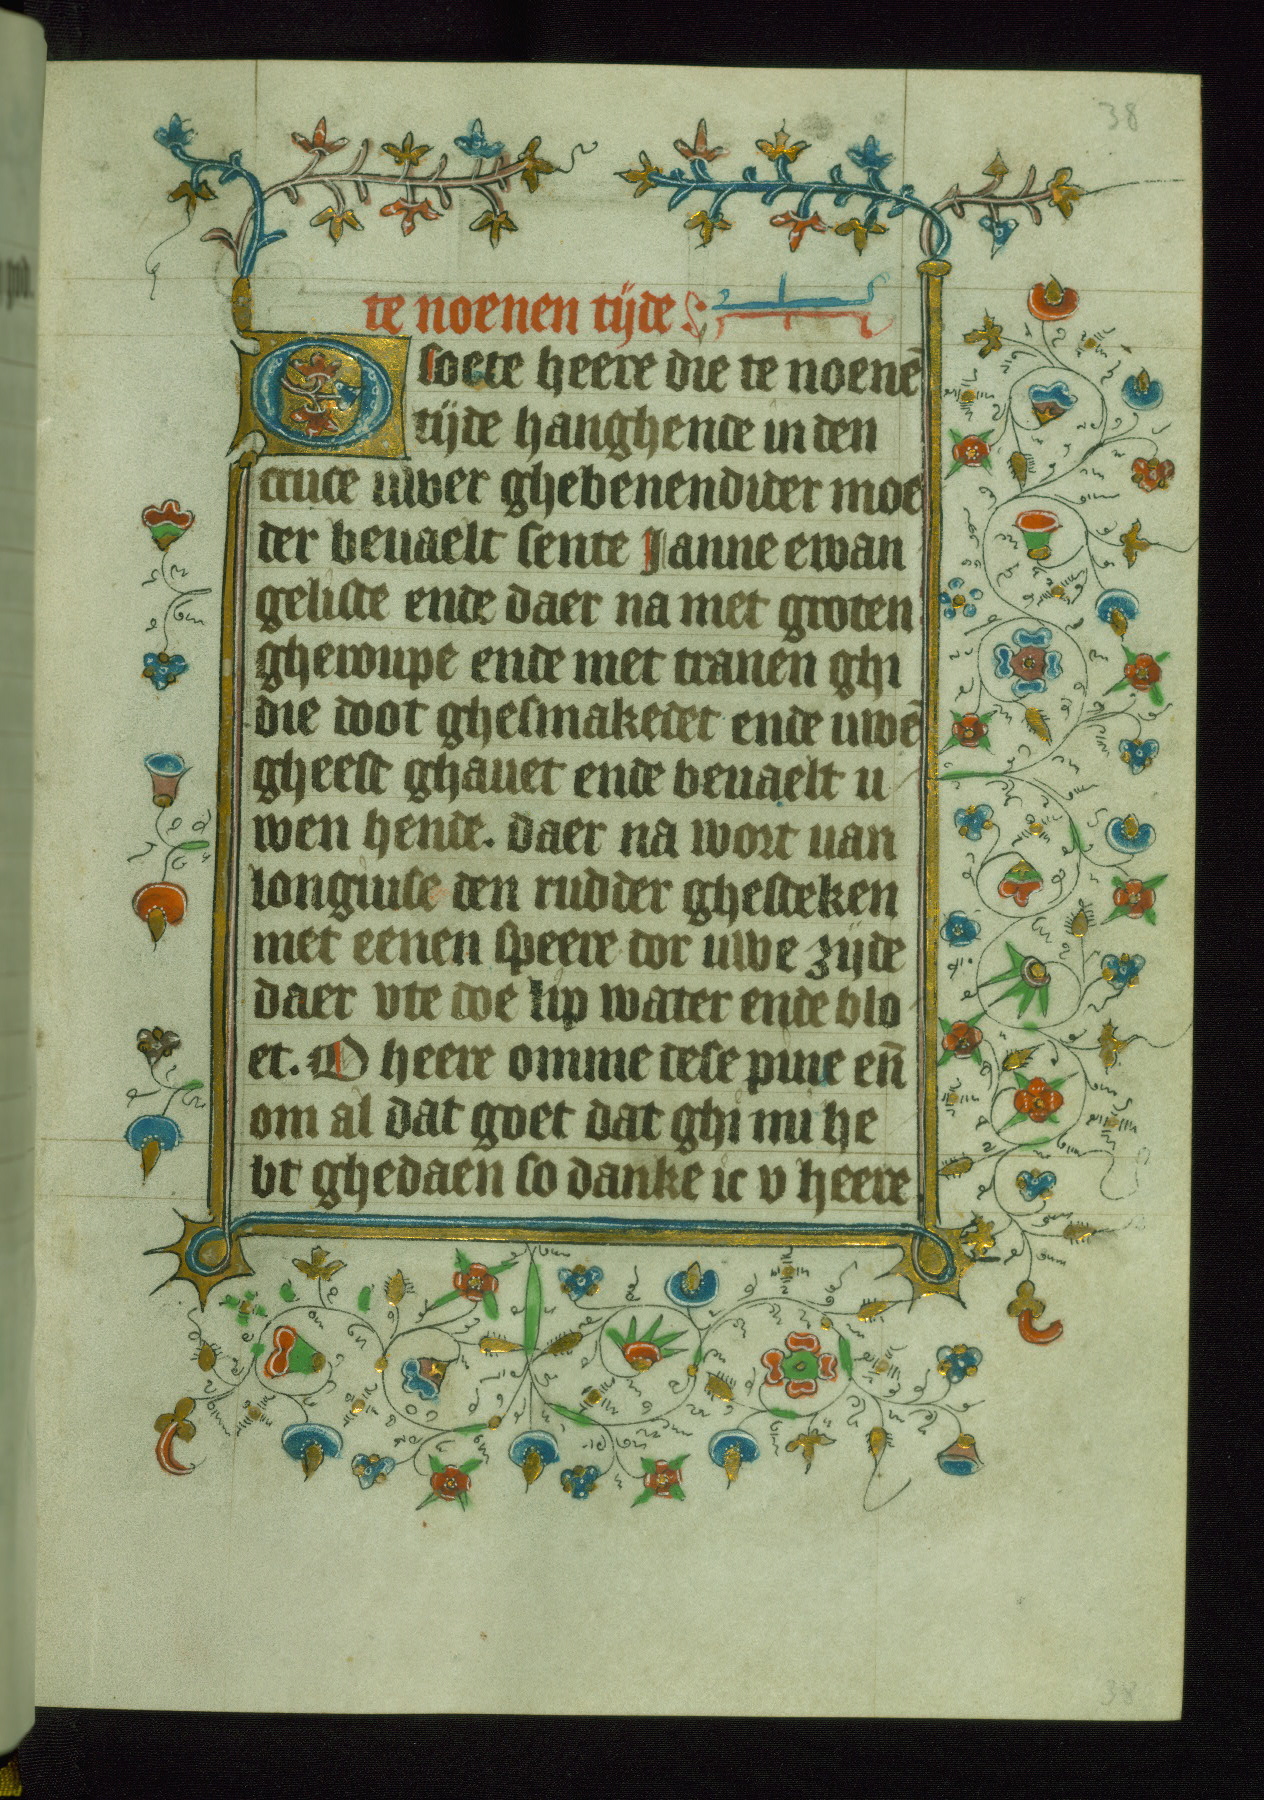 38
te noenen tijde
O soete heere die te noenē
tijde hanghende in den
cruce uwer ghebenendider moe
der bevaelt sente Janne ewan
geliste ende daer na met groten
gheroupe ende met tranen ghi
die doot ghesmakedet ende uwē
gheest ghauet ende bevaelt u
wen hende. daer na wort uan
longinse den rudder ghesteken
met eenen speere dor uwe zijde
daer vte doe lip water ende blo
et. O heere omme dese pine en̄
om al dat goet dat ghi mi he
bt ghedaen so danke ic v heere
38